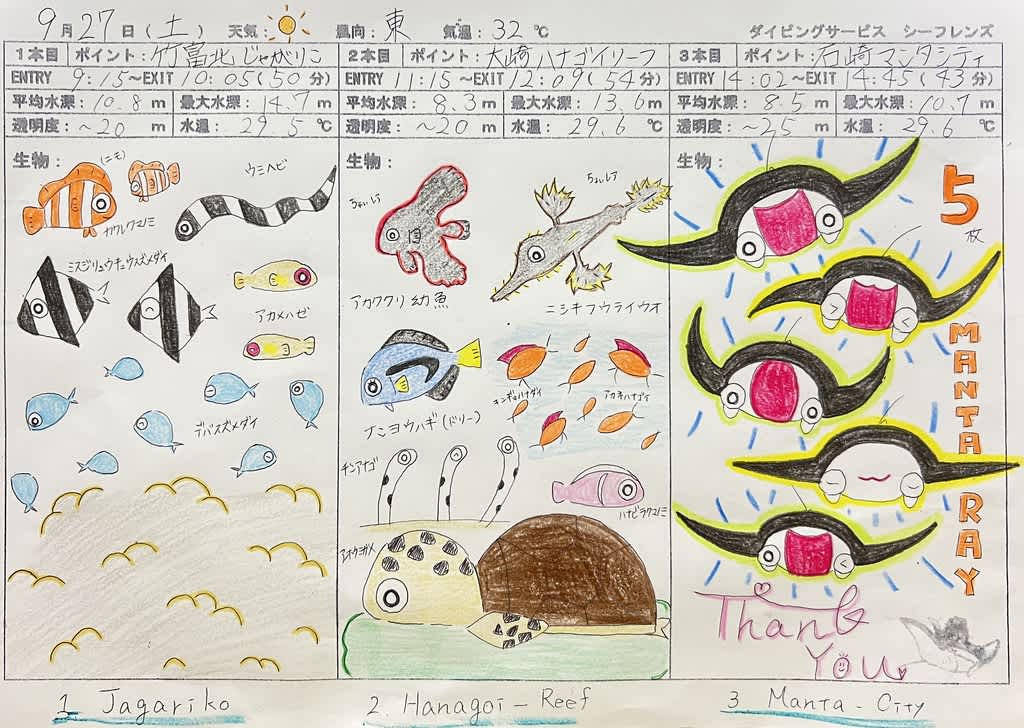 9月27日(土) 天気: 風向:東 気温:32℃ ダイビングサービス シーフレンズ
1本目 ポイント:竹富北じゃがりこ
ENTRY 9:15~EXIT 10:05(50分)
平均水深:10.8m 最大水深:14.7m
透明度:~20m 水温:29.5℃
生物:
(ニモ)
カクレクマノミ
ウミヘビ
ミスジリュウキュウスズメダイ
アカメハゼ
デバスズメダイ
1. Jagariko
2本目 ポイント:大崎ハナゴイリーフ
ENTRY 11:15~EXIT 12:09(54分)
平均水深:8.3m 最大水深:13.6m
透明度:~20m 水温:29.6℃
生物:
ちょいレア
ちょいレア
アカククリ幼魚
ニシキフウライウオ
ナンヨウハギ(ドリー)
キンギョハナダイ
アカネハナゴイ
チンアナゴ
ハナビラクマノミ
アオウミガメ
2. Hanagoi-Reef
3本目 ポイント:石崎マンタシティ
ENTRY 14:02~EXIT 14:45(43分)
平均水深:8.5m 最大水深:10.7m
透明度:~25m 水温:29.6℃
生物:
5枚
MANTA RAY
Thank
You
3 Manta-City